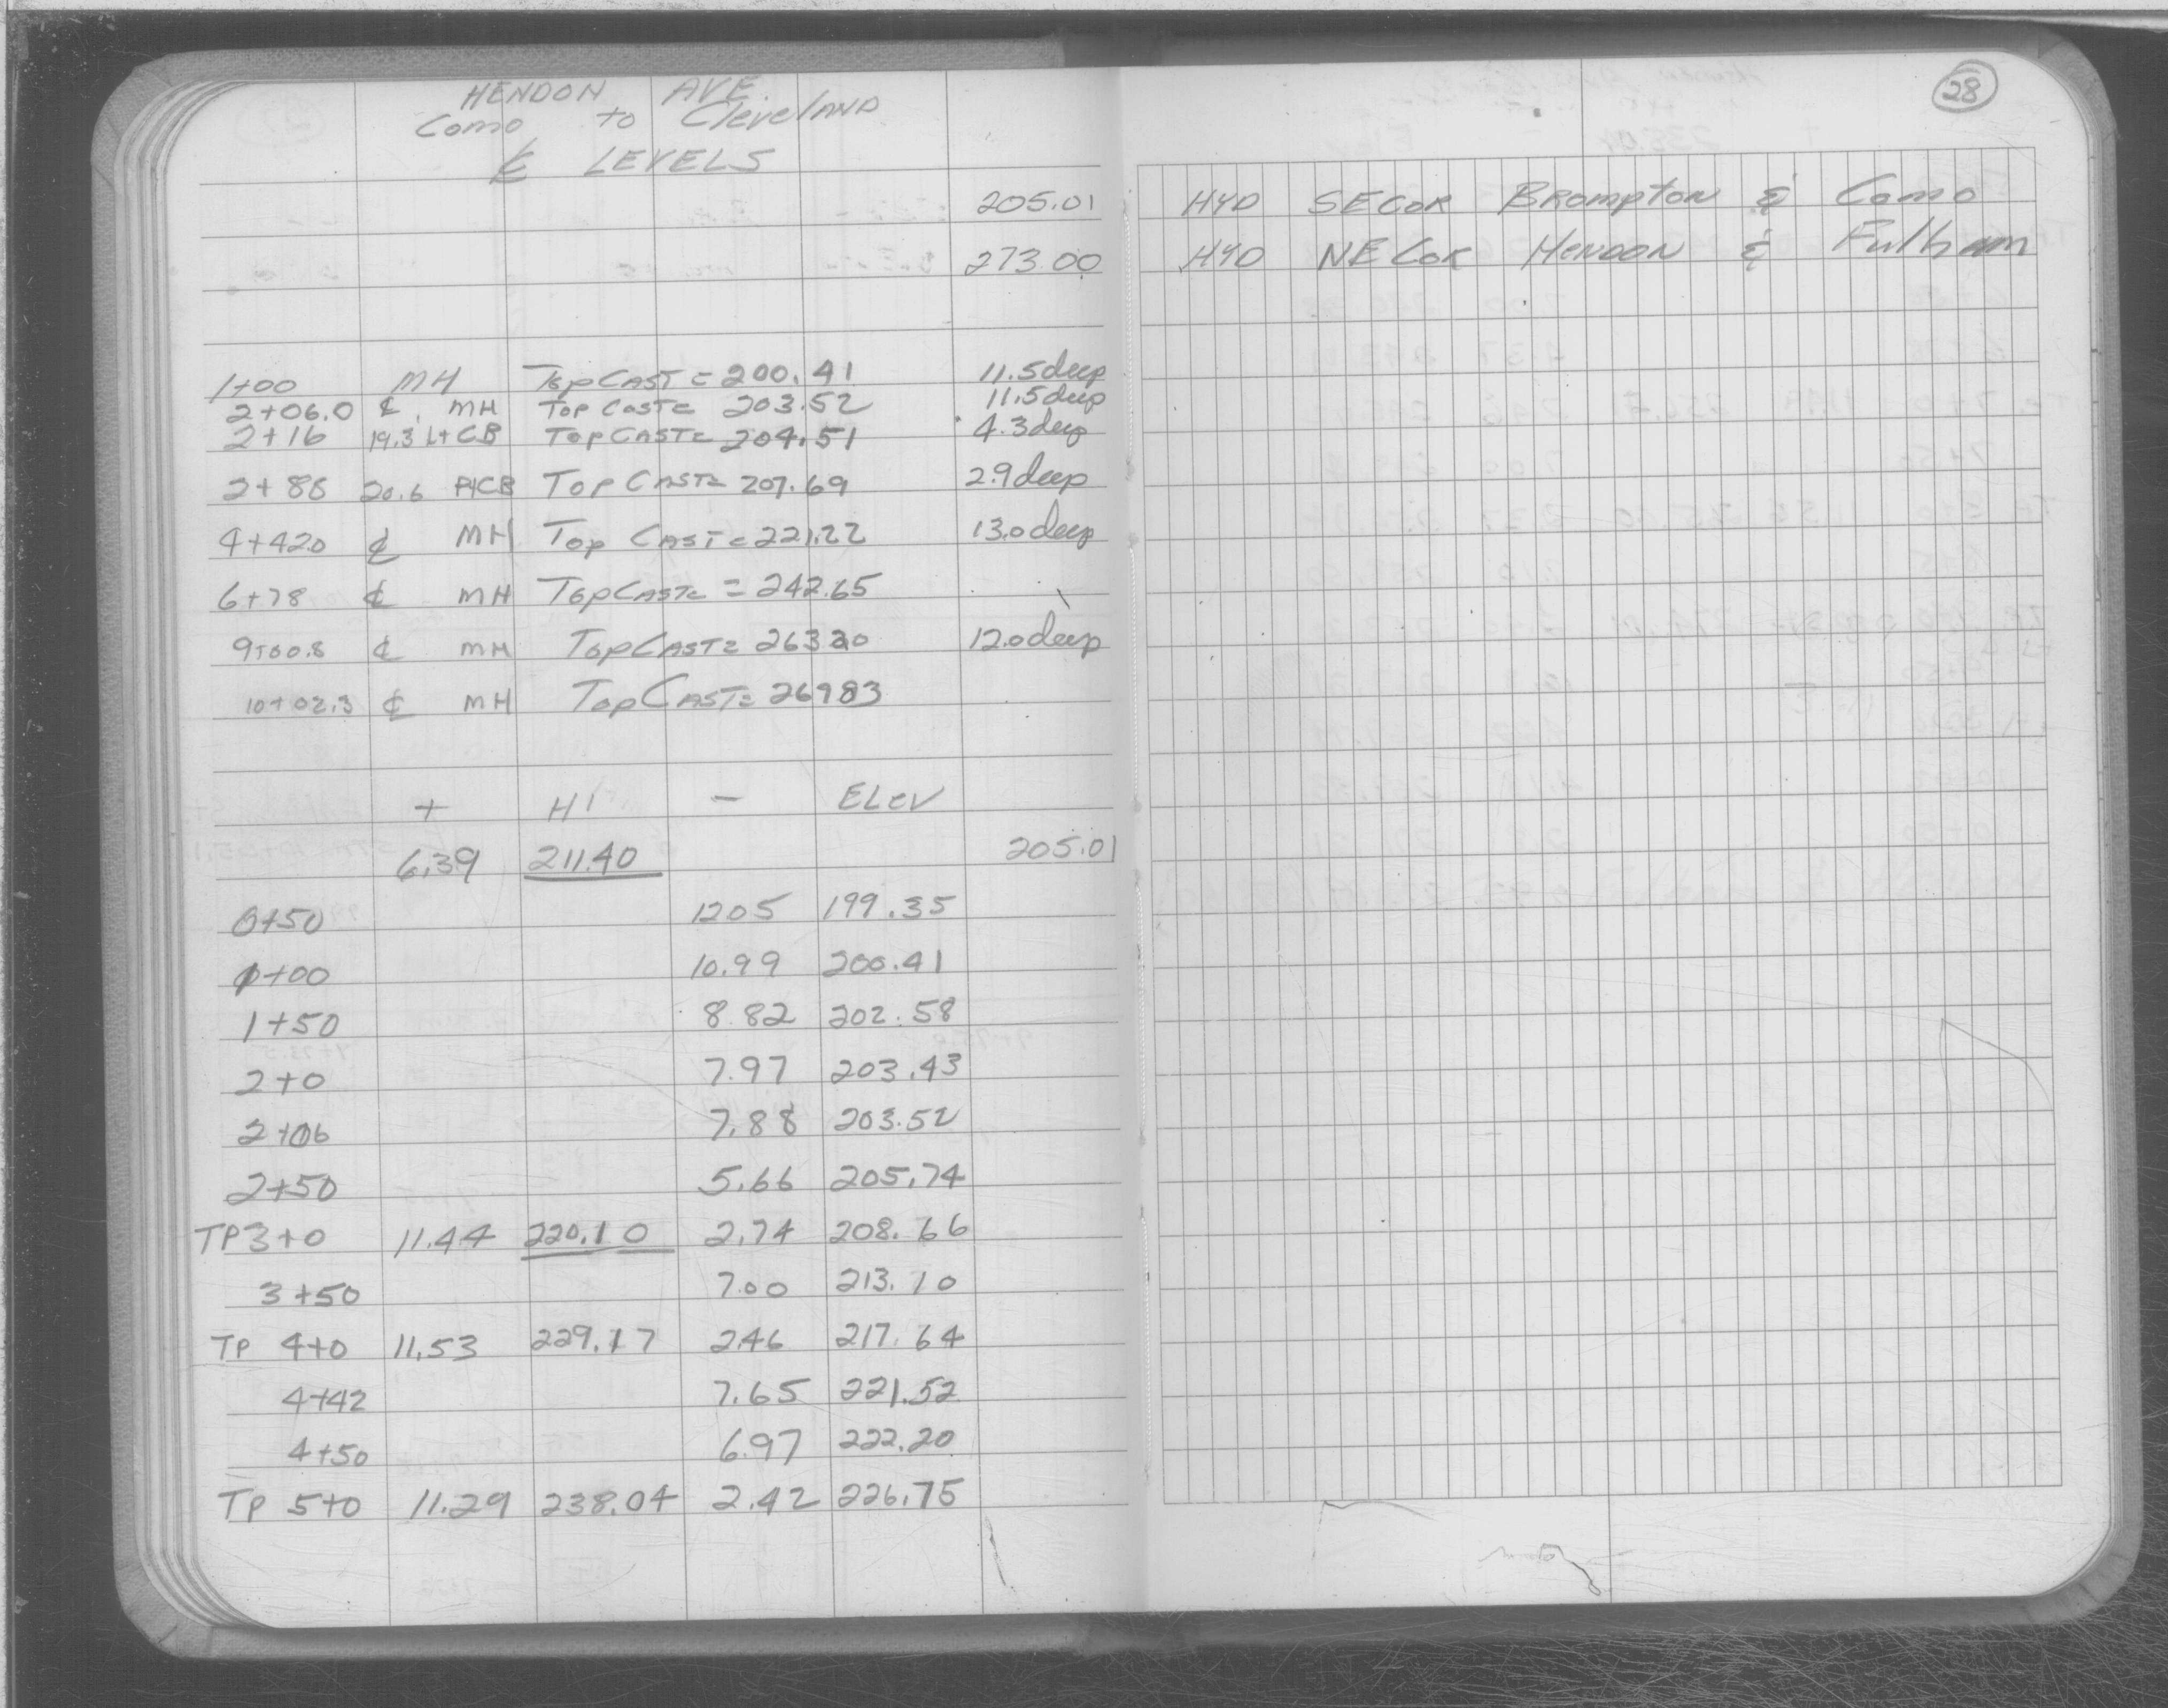 HENDON AVE.
Como to Cleveland
℄ LEVELS
205.01
273.00
1+00 MH Top Cast = 200.41 11.5 deep
2+06.0 ℄ MH Top Cast= 203.52 11.5 deep
2+16 19.3 Lt CB Top Cast= 204.51 4.3 deep
2+88 20.6 Rt CB Top Cast= 207.69 2.9 deep
4+42.0 ℄ MH Top Cast= 221.22 13.0 deep
6+78 ℄ MH Top Cast= = 242.65
9+00.8 ℄ MH Top Cast= 263.20 12.0 deep
10+02.3 ℄ MH Top Cast= 269.83
+ HI - ELEV
6.39 211.40 205.01
0+50 12.05 199.35
1+00 10.99 200.41
1+50 8.82 202.58
2+0 7.97 203.43
2+06 7.88 203.52
2+50 5.66 205.74
TP 3+0 11.44 220.10 2.74 208.66
3+50 7.00 213.10
TP 4+0 11.53 229.17 2.46 217.64
4+42 7.65 221.52
4+50 6.97 222.20
TP 5+0 11.29 238.04 2.42 226.75
28
HYD SE COR Brompton & Como
HYD NE Cor Hendon & Fulham